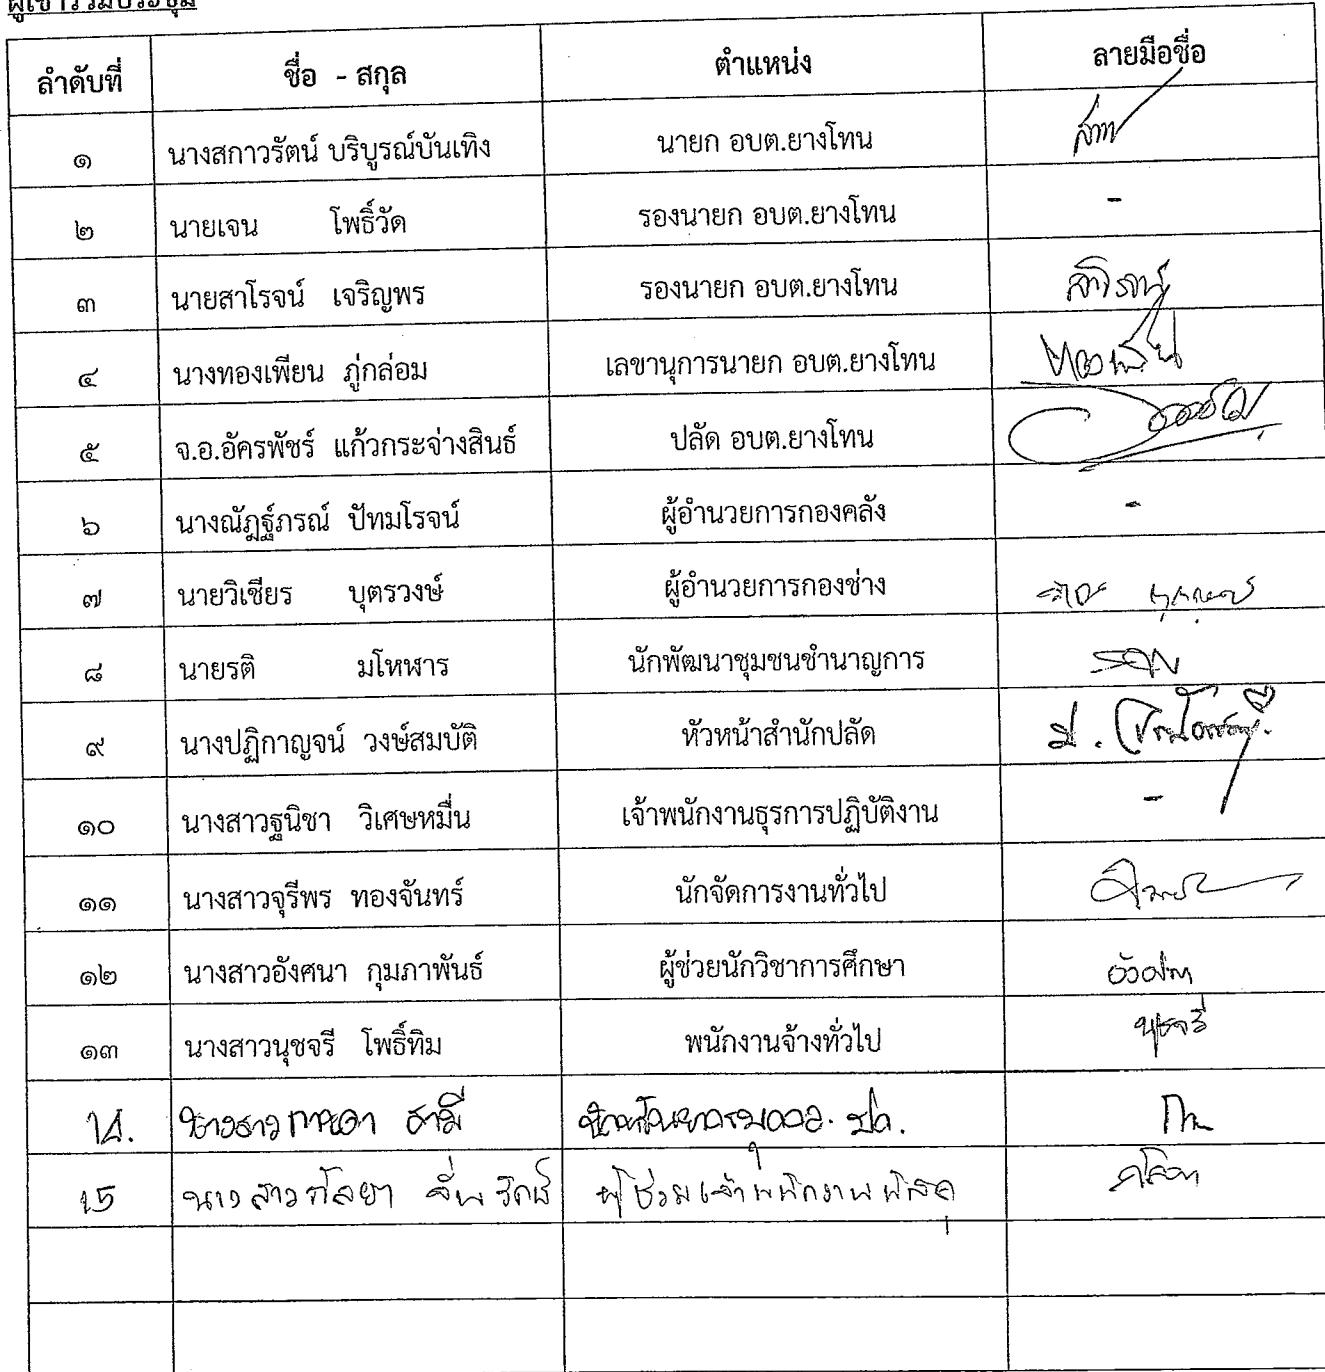 ผู้เข้าร่วมประชุม
ลำดับที่ ชื่อ - สกุล ตำแหน่ง ลายมือชื่อ
๑ นางสกาวรัตน์ บริบูรณ์บันเทิง นายก อบต.ยางโทน
๒ นายเจน โพธิ์วัด รองนายก อบต.ยางโทน -
๓ นายสาโรจน์ เจริญพร รองนายก อบต.ยางโทน สาโรจน์
๔ นางทองเพียน ภู่กล่อม เลขานุการนายก อบต.ยางโทน ทองเพียน
๕ จ.อ.อัครพัชร์ แก้วกระจ่างสินธ์ ปลัด อบต.ยางโทน
๖ นางณัฎฐ์ภรณ์ ปัทมโรจน์ ผู้อำนวยการกองคลัง -
๗ นายวิเชียร บุตรวงษ์ ผู้อำนวยการกองช่าง
๘ นายรติ มโหฬาร นักพัฒนาชุมชนชำนาญการ
๙ นางปฏิกาญจน์ วงษ์สมบัติ หัวหน้าสำนักปลัด
๑๐ นางสาวฐนิชา วิเศษหมื่น เจ้าพนักงานธุรการปฏิบัติงาน -
๑๑ นางสาวจุรีพร ทองจันทร์ นักจัดการงานทั่วไป
๑๒ นางสาวอังศนา กุมภาพันธ์ ผู้ช่วยนักวิชาการศึกษา อังศนา
๑๓ นางสาวนุชจรี โพธิ์ทิม พนักงานจ้างทั่วไป นุชจรี
14. นางสาว
15 นางสาวกัลยา ผู้ช่วยเจ้าพนักงานพัสดุ